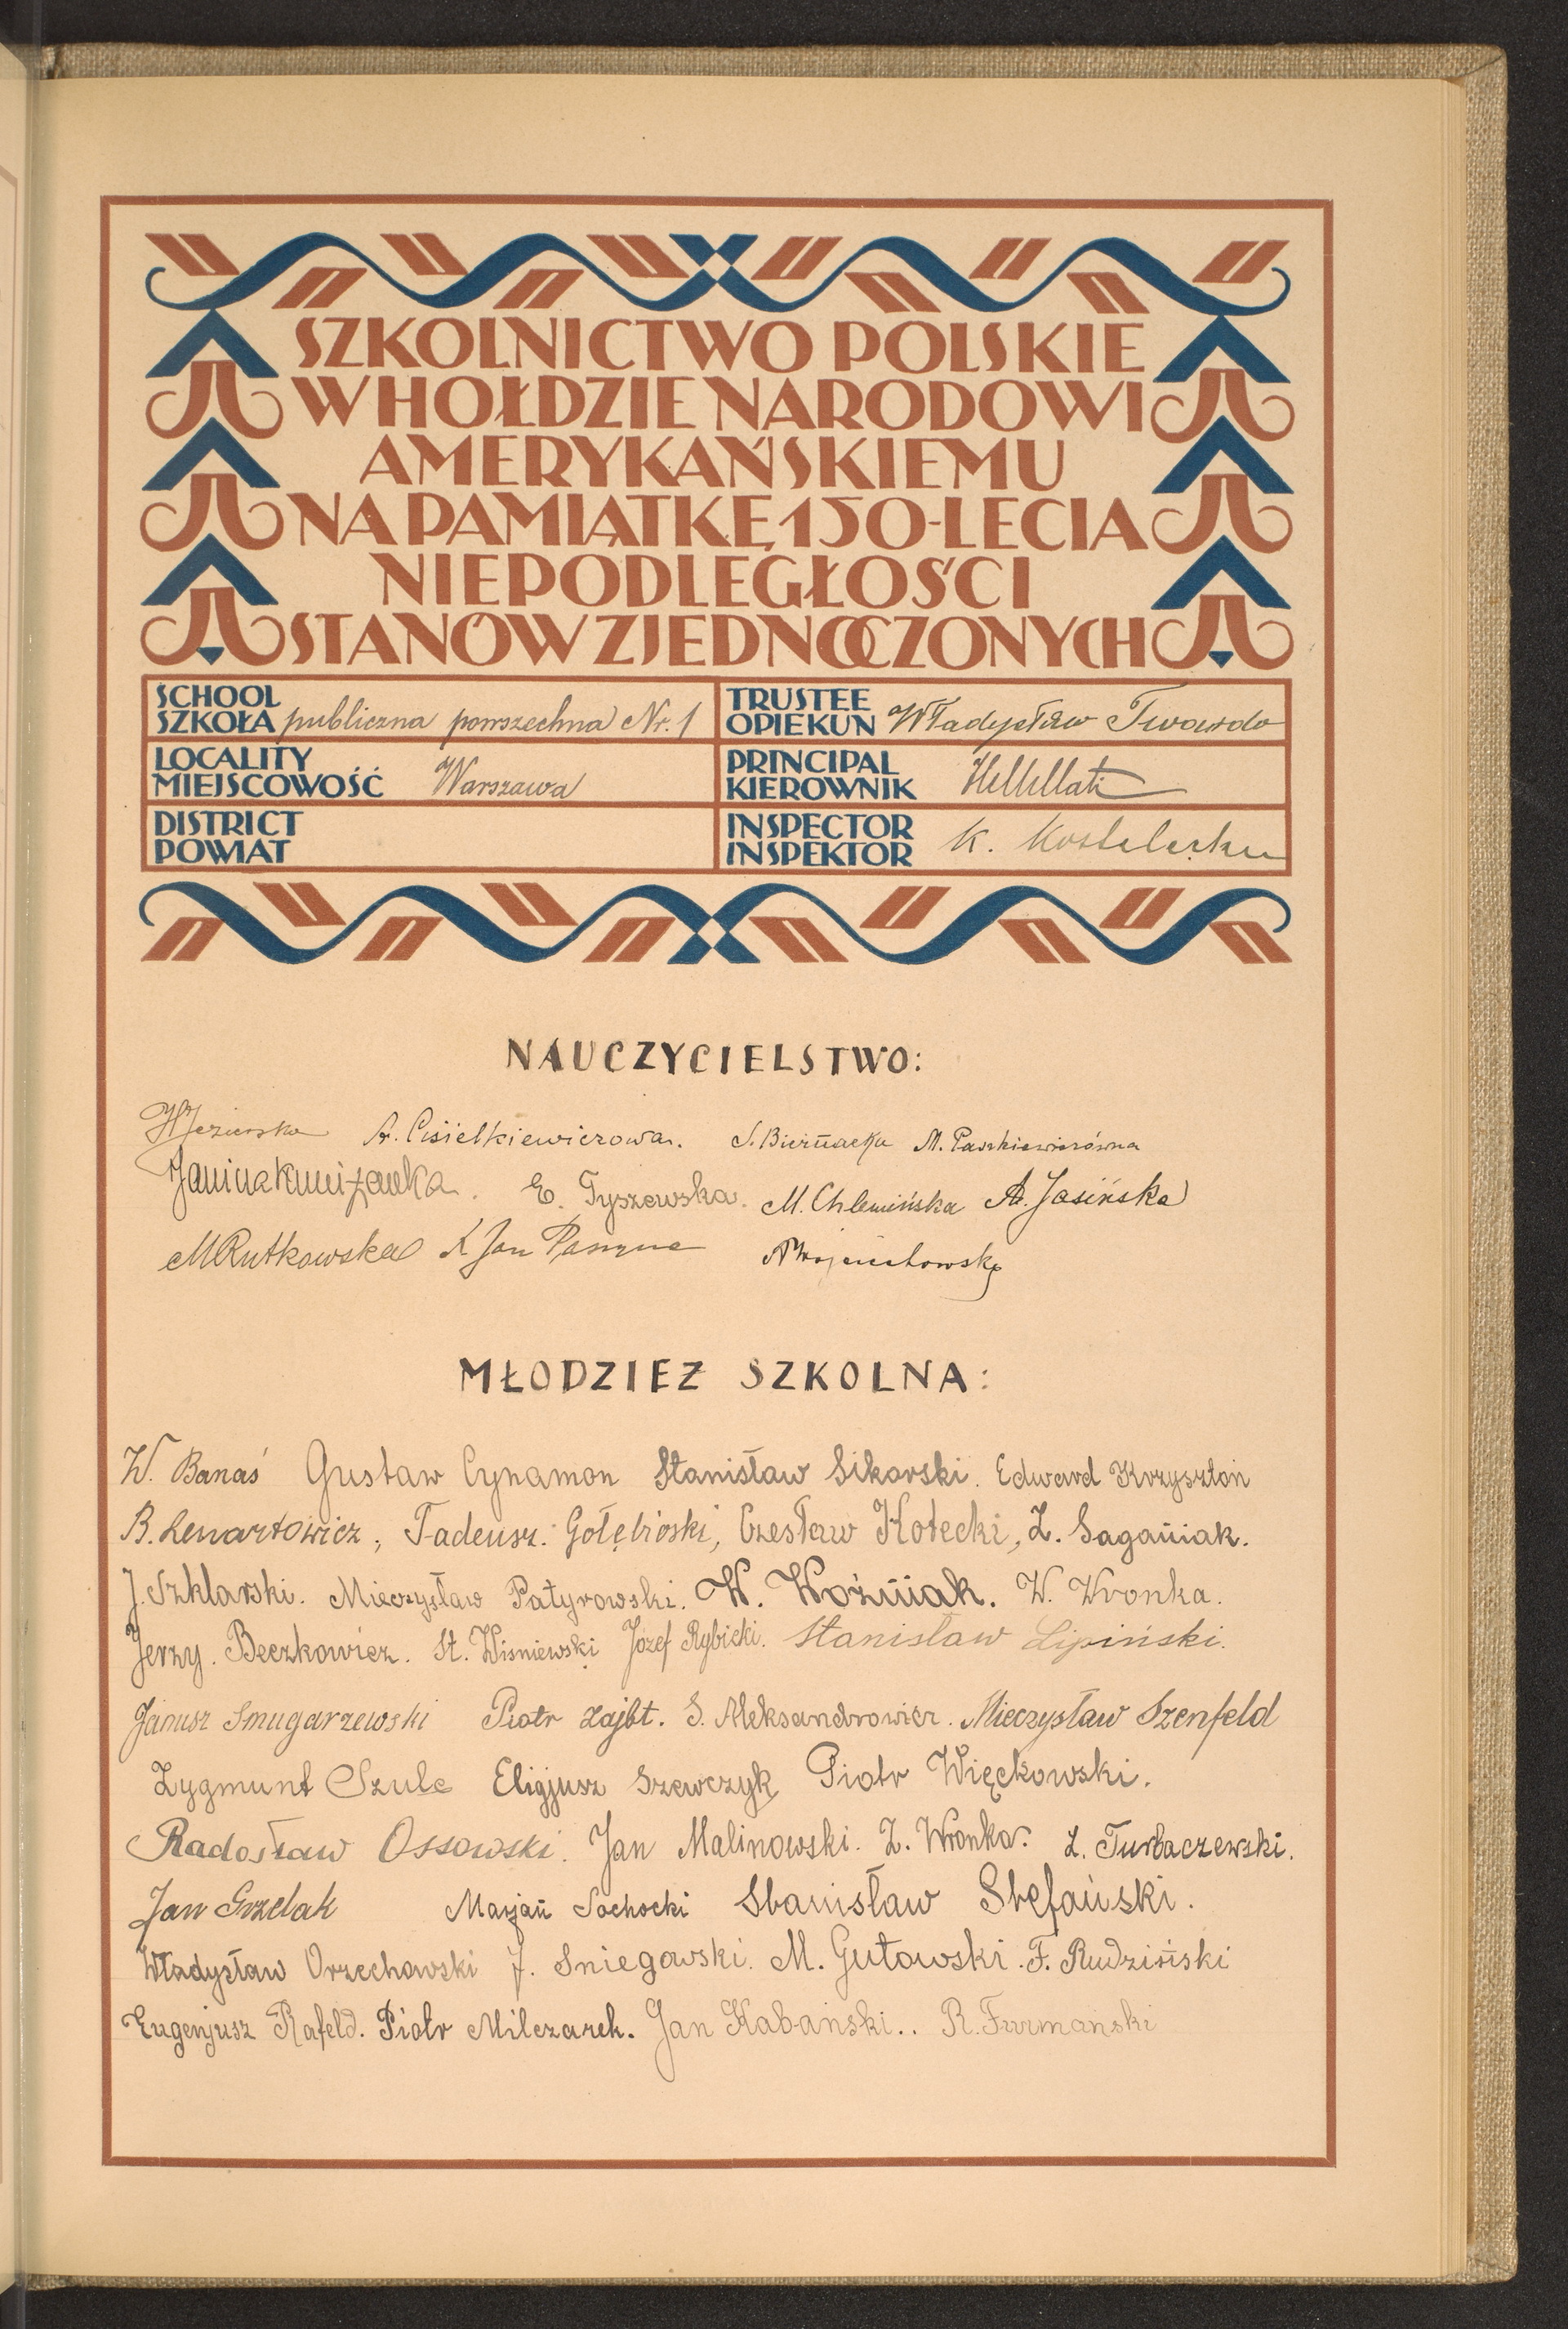 SZKOLNICTWO POLSKIE
W HOŁDZIE NARODOWI
AMERYKAŃSKIEMU
NA PAMIĄTKĘ 150-LECIA
NIEPODLEGŁOŚCI
STANÓW ZJEDNOCZONYCH
SCHOOL
SZKOŁA publiczna powszechna Nr. 1
TRUSTEE
OPIEKUN Władysław Twardo
LOCALITY
MIEJSCOWOŚĆ Warszawa
PRINCIPAL
KIEROWNIK
DISTRICT
POWIAT
INSPECTOR
INSPEKTOR K.
NAUCZYCIELSTWO:
HJezierska A. Cisielkiewiczowa. S. Biernacka M. Paszkiewiczówna
Janina E. Tyszewska. M. Chlewińska A. Jasińska
MRutkowska X Jan AWojciechowska
MŁODZIEŻ SZKOLNA:
W. Banaś Gustaw Cynamon Stanisław Sikorski. Edward Krzysztoń
B. Lenartowicz, Tadeusz. Gołębioski, Czesław Kotecki, Z. Saganiak.
J. Szklarski. Mieczysław Patyrowski. W. Woźniak. W. Wronka.
Jerzy. Beczkowicz. St. Wiśniewski Józef Rybicki. Stanisław Lipiński.
Janusz Smugarzewski Piotr Zajbt. S. Aleksandrowicz. Mieczysław Szenfeld
Zygmunt Szulc Eligjusz Szewczyk Piotr Więckowski.
Radosław Ossowski. Jan Malinowski. Z. Wronka. Z. Turbaczewski.
Jan Grzelak Marjan Sochocki Stanisław Stefański.
Władysław Orzechowski J. Sniegowski. M. Gutowski. F. Rudziński
Eugenjusz Rafeld. Piotr Milczarek. Jan Kabański.. R. Furmański